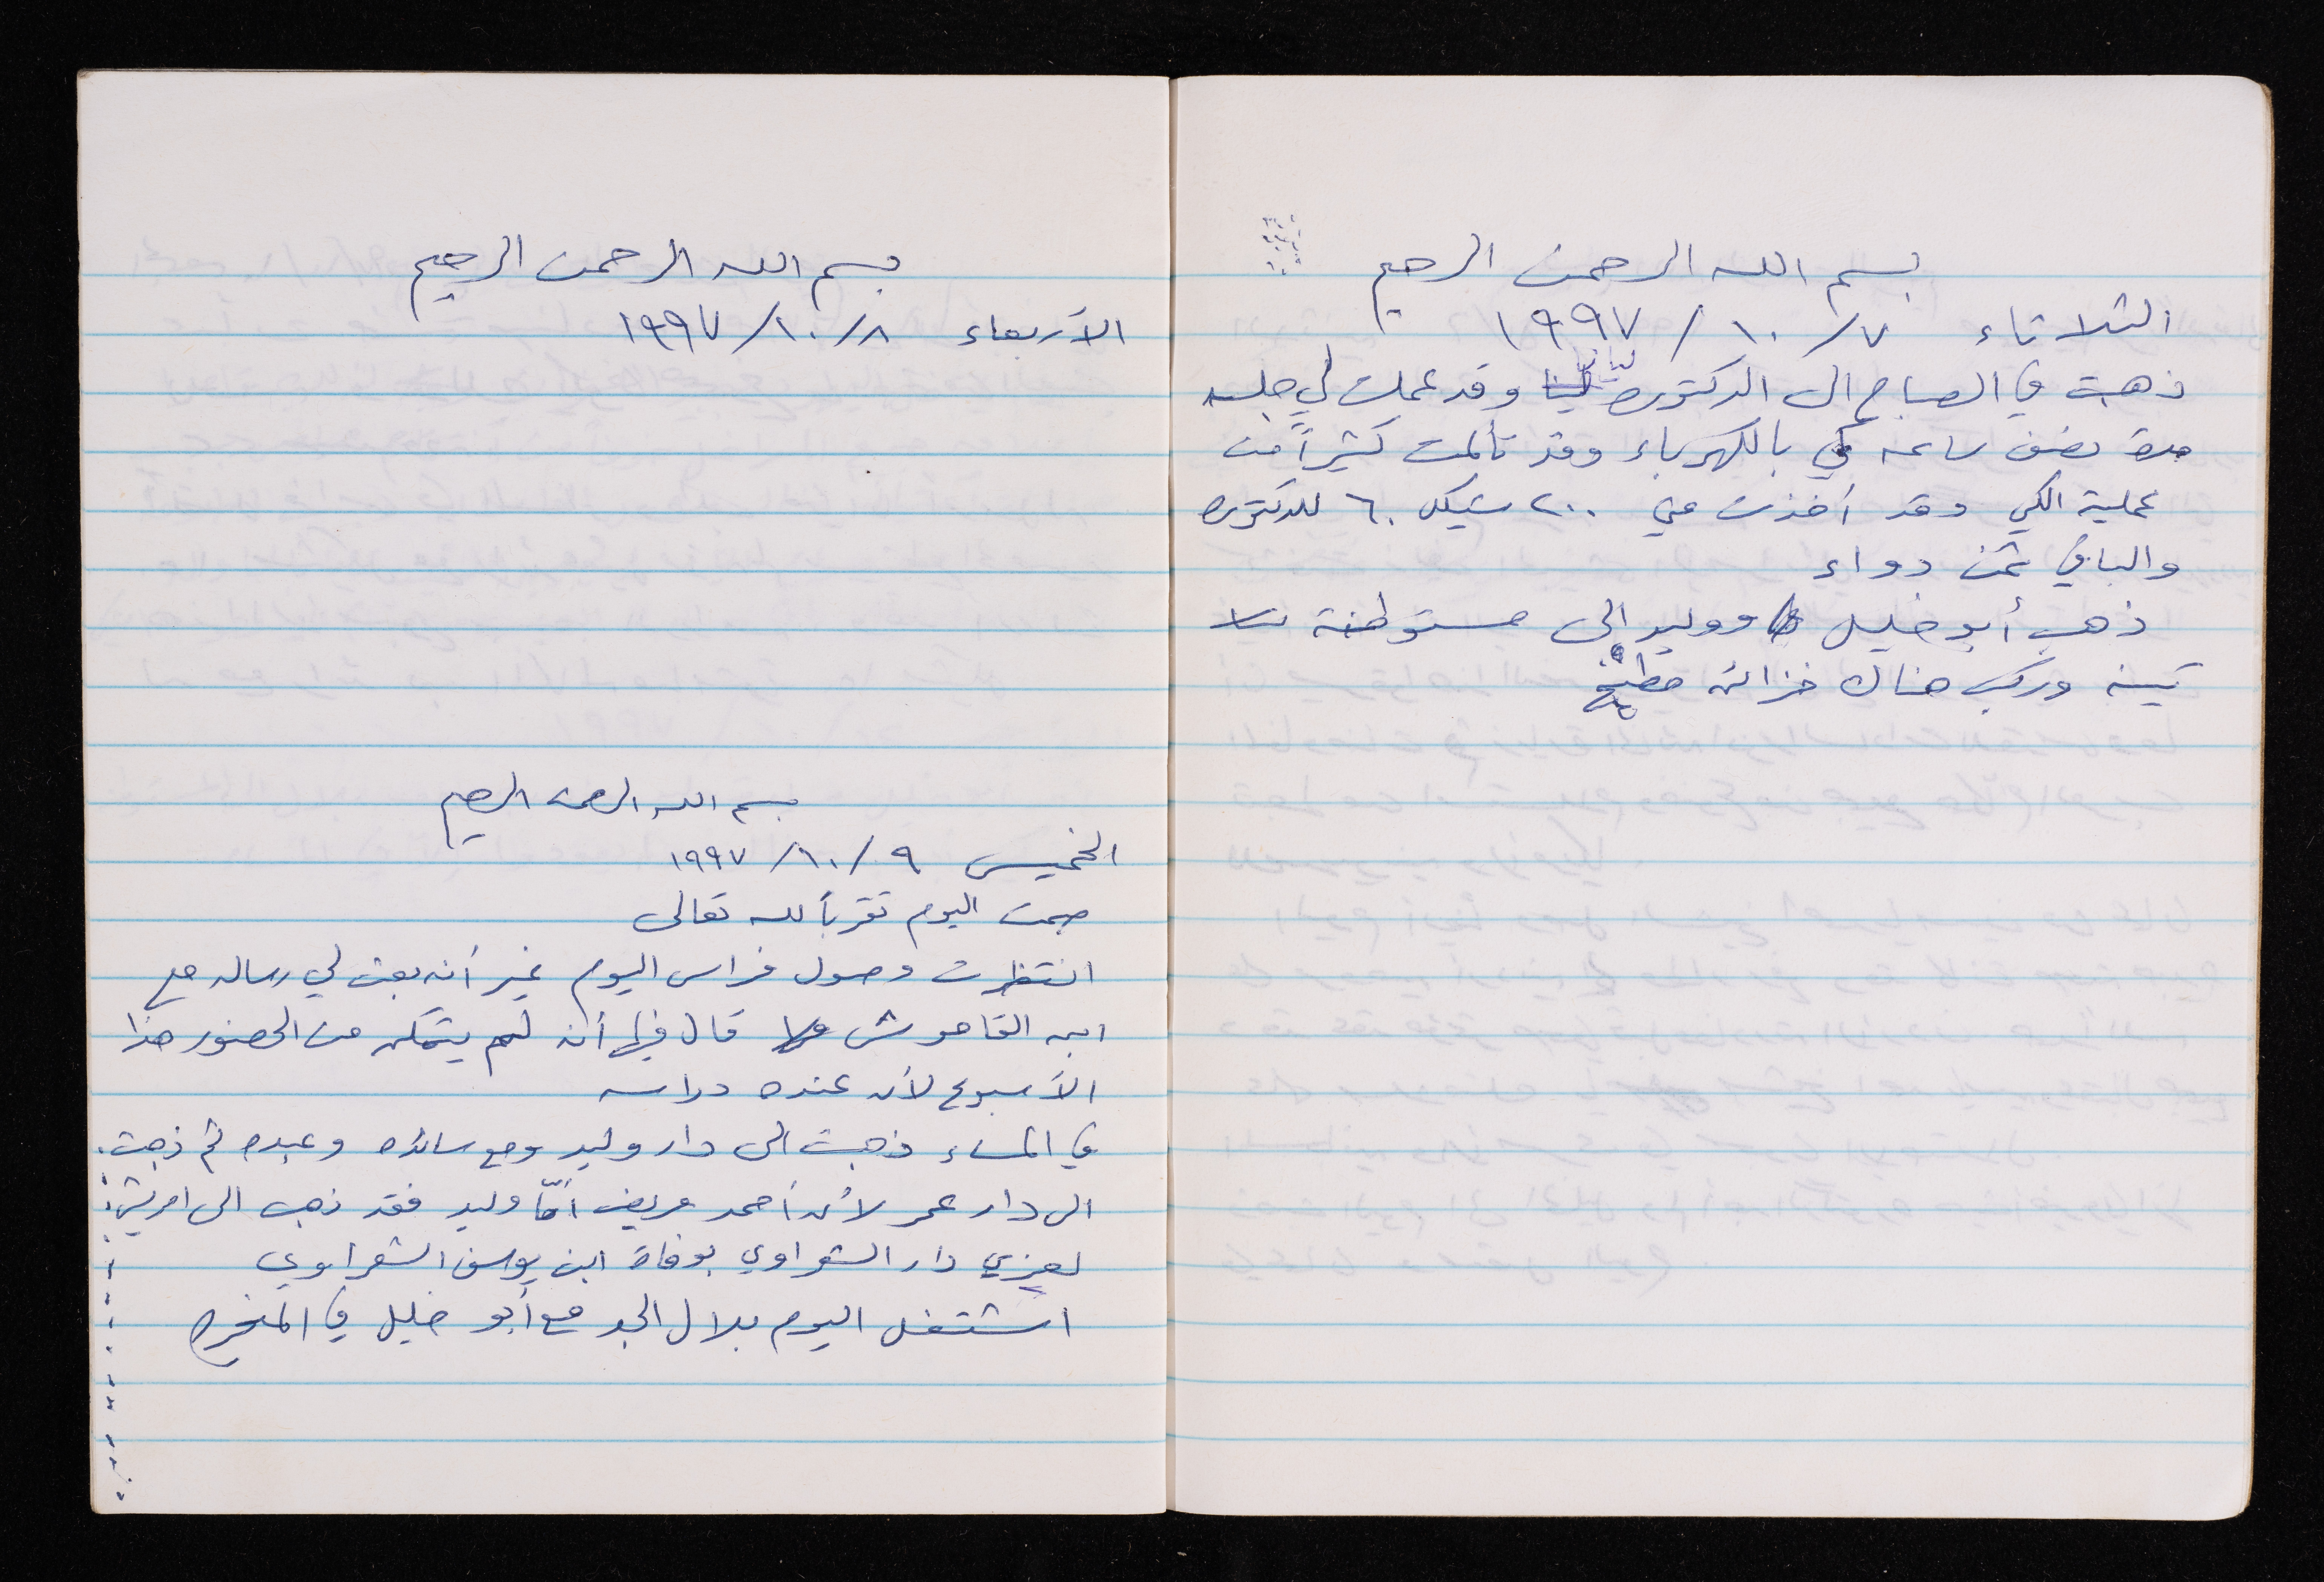 بسم الله الرحمن الرحيم
الثلاثاء ٧/١٠/١٩٩٧
ذهبت في الصباح الى الدكتوره لينا وقد عملت لي جلسه
مدة نصف ساعه كي بالكهرباء وقد تألمت كثيراً من
عملية الكي وقد أخذت مني ٢٠٠ شيكل ٦٠ للدكتوره
والباقي ثمن دواء
ذهب أبو خليل ووليد الى مستوطنة
وركب هناك خزائن مطبخ
بسم الله الرحمن الرحيم
الأربعاء ٨/١٠/١٩٩٧
بسم الله الرحمن الرحيم
الخميس ٩/١٠/١٩٩٧
صمت اليوم تقرباً لله تعالى
انتظرت وصول فراس اليوم غير أنه بعث لي رساله مع
ابن القاموش قال فيها أنه لم يتمكن من الحضور هذا
الأسبوع لأن عنده دراسه
في المساء ذهبت الى دار وليد ومع سائده وعبده ثم ذهبت
الى دار عمر لأن أحمد مريض أمّا وليد فقد ذهب الى
ليعزي دار الشعراوي بوفاة ابن يوسف الشعراوي
اشتغل اليوم بلال الجد مع أبو خليل في المنجره